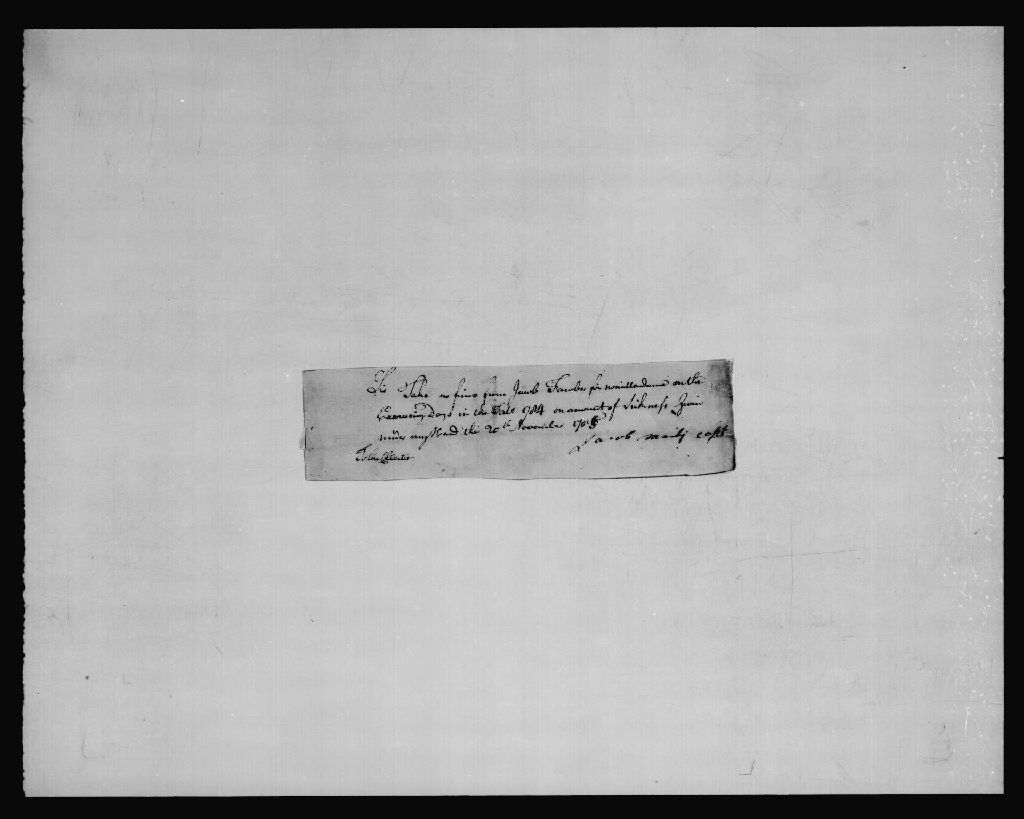 Sir Take no fine from Jacob for nonattendance on the
Exercising Days in the Fall 1784 on amount of Sickness Given
under my Hand the 20th November 1785
Jacob Capt
To the Collector